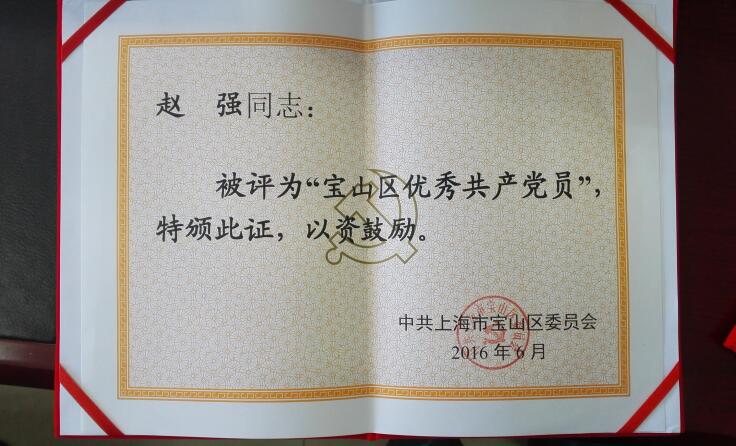 赵 强同志:
被评为“宝山区优秀共产党员”,
特颁此证,以资鼓励。
中共上海市宝山区委员会
2016年6月